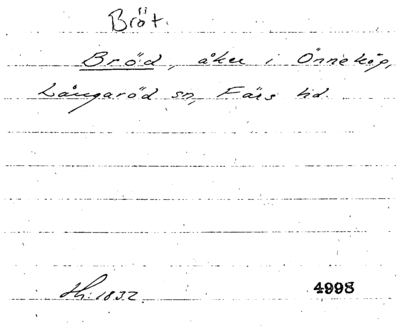 Bröt.
Bröd, åker i Önneköp,
Långaröd sn, Färs hd.
Hi. 1832.
4998